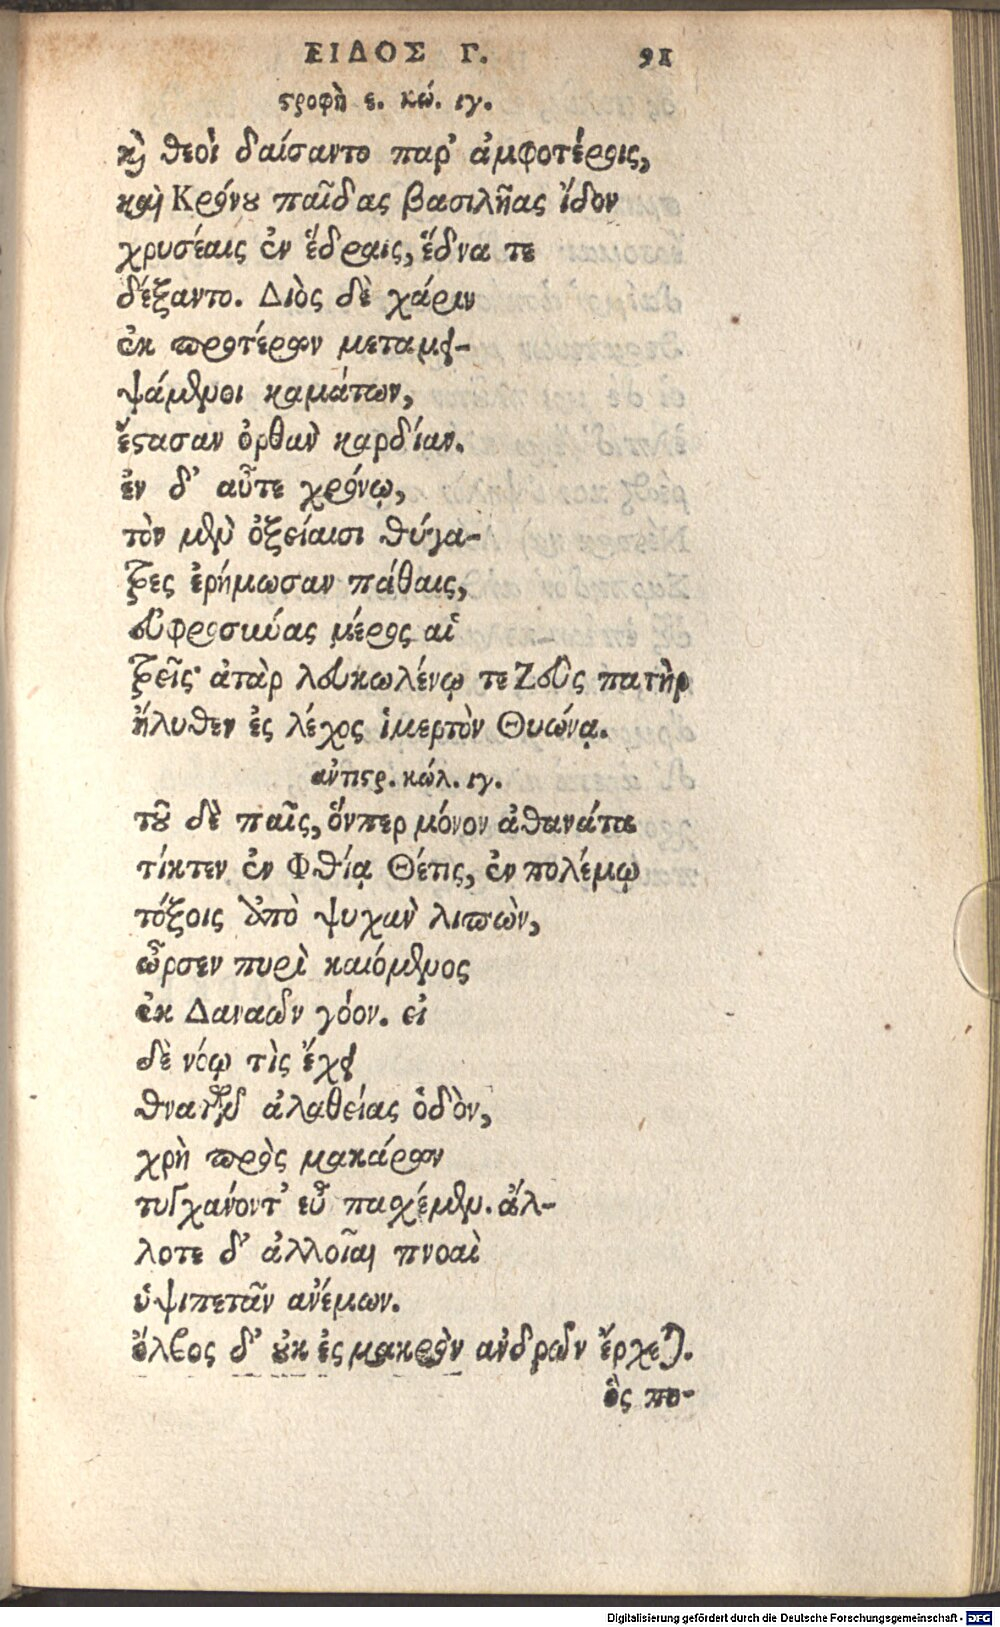 ΕΙΔΟΣ Γ. 91
ςροφὴ ε. κώ. ιγ.
καὶ θεοὶ δαίσαντο παρ' ἀμφοτέροις,
καὶ Κρόνου παῖδας βασιλῆας ἴδον
χρυσέαις ἐν ἕδραις, ἕδνα τε
δέξαντο. Διὸς δὲ χάριν
ἐκ προτέρων μεταμει-
ψάμενοι καμάτων,
ἔςασαν ὀρθαν καρδίαν.
ἐν δ' αὖτε χρόνῳ,
τὸν μὲν ὀξείαισι θύγα-
τρες ἐρήμωσαν πάθαις,
εὐφροσυύας μέρος αἱ
τρεῖς· ἀτὰρ λευκωλένῳ τε Ζεὺς πατὴρ
ἤλυθεν ἐς λέχος ἱμερτὸν Θυώνᾳ.
ἀντιςρ. κώλ. ιγ.
τοῦ δὲ παῖς, ὅνπερ μόνον ἀθανάτα
τίκτεν ἐν Φθίᾳ Θέτις, ἐν πολέμῳ
τόξοις ἀπὸ ψυχὰν λιπὼν,
ὦρσεν πυρὶ καιόμενος
ἐκ Δαναῶν γόον. εἰ
δὲ νόῳ τὶς ἔχει
θνατῶν ἀλαθείας ὁδὸν,
χρὴ πρὸς μακάρων
τυγχάνοντ' εὖ πασχέμεν. ἄλ-
λοτε δ' ἀλλοῖαι πνοαὶ
ὑψιπετᾶν ἀνέμων.
ὄλβος δ' οὐκ ἐς μακρὸν ἀνδρῶν ἔρχεται.
ὃς πο-
Digitalisierung gefördert durch die Deutsche Forschungsgemeinschaft - DFG